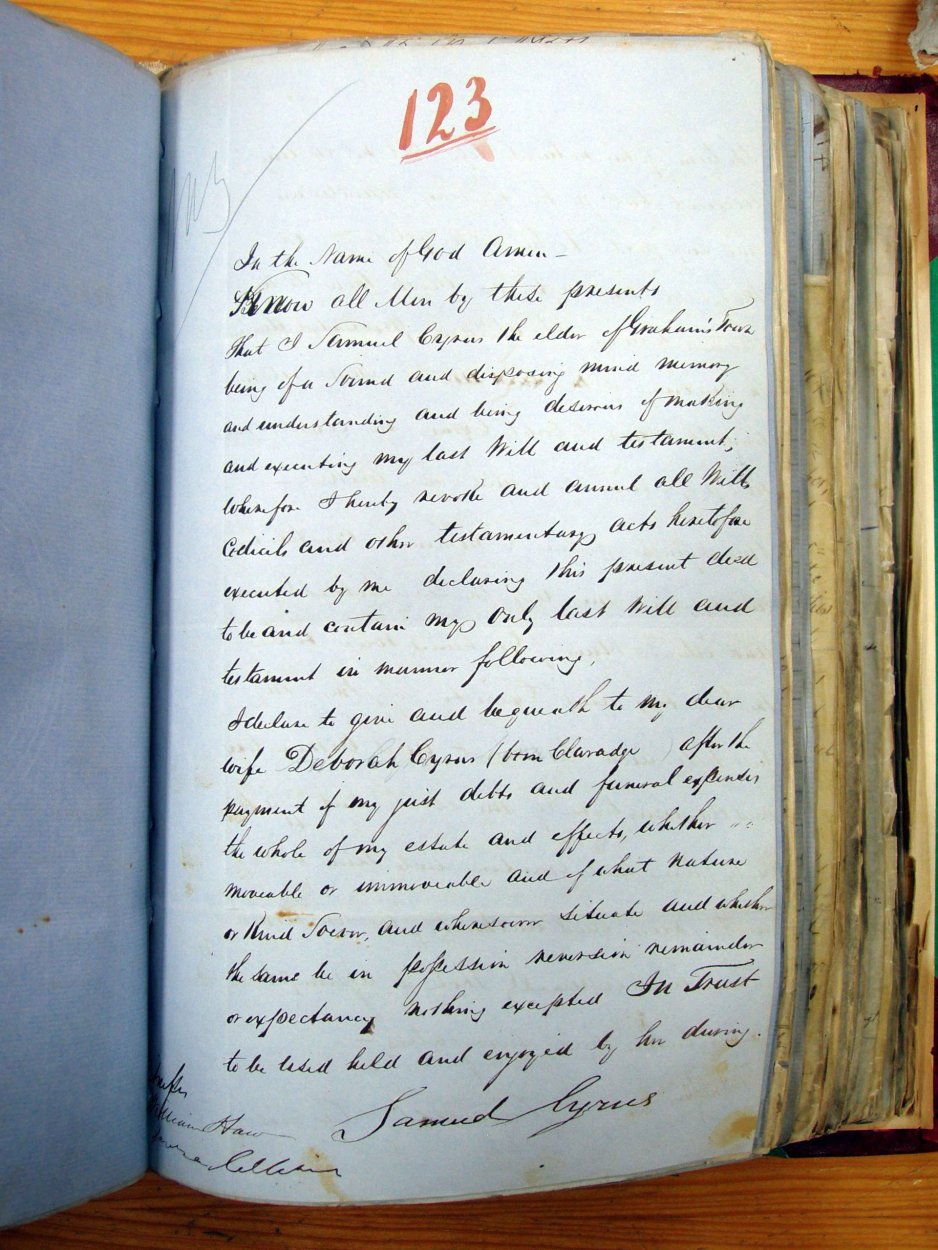 123
In the Name of God Amen -
Know all Men by these presents
that I Samuel Cyrus the elder of Graham's Town
being of a Sound and disposing mind memory
and understanding and being desirous of making
and executing my last Will and testament;
wherefore I hereby revoke and annul all Wills
Codicils and other testamentary acts heretofore
executed by me declaring this present deed
to be and contain my only last Will and
testament in manner following,
I declare to give and bequeath to my dear
wife Deborah Cyrus (born Claradge) after the
payment of my just debts and funeral expenses
the whole of my estate and effects, whether
moveable or immoveable and of what nature
or Kind Soever, and wheresoever situate and whether
the same be in possession reversion remainder
or expectancy nothing excepted In Trust
to be used held and enjoyed by her during.
Samuel Cyrus
William Haw